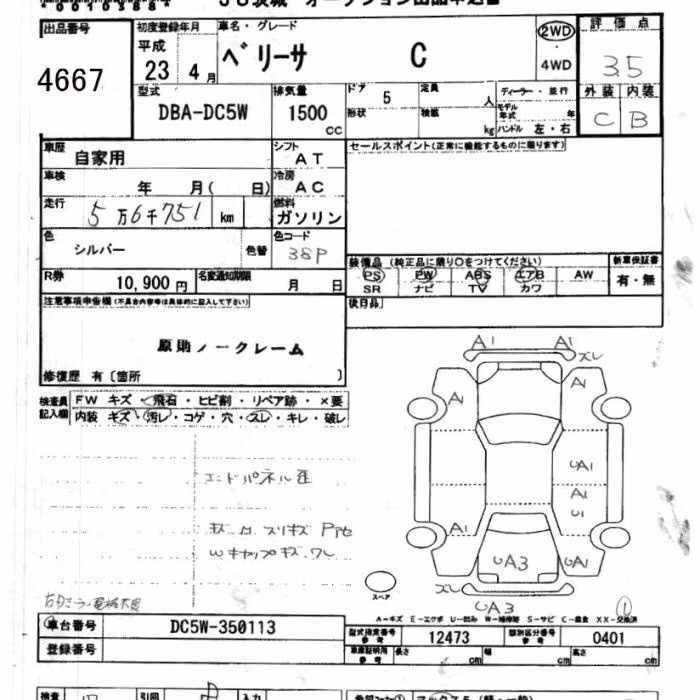 出品番号
4667
初度登録年月
平成
23 4月
車名・グレード
ベリーサ C
2WD
4WD
評価点
3.5
外装 内装
C B
型式
DBA-DC5W
排気量
1500
CC
ドア 5
定員
人
形状
積載
kg
ディーラー・並行
モデル年式 年
ハンドル 左・右
車歴
自家用
シフト
AT
セールスポイント(正常に機能するものに限ります)
車検
年 月( 日)
冷房
AC
走行
5万6千751 km
燃料
ガソリン
色
シルバー
色替
色コード
38P
装備品 (純正品に限り○をつけてください)
新車保証書
PS PW ABS エアB AW
SR ナビ TV カワ
有・無
R券
10,900円
名変通知期限
月 日
注意事項申告欄(不具合内容等は具体的に記入して下さい)
後日品
原則ノークレーム
修復歴 有〔箇所 〕
検査員記入欄
FW キズ・飛石・ヒビ割・リペア跡・×要
内装 キズ・汚レ・コゲ・穴・スレ・キレ・破レ
A1 A1
ズレ
A1 A1
UA1
A1
U1
A1
UA3 UA1
ズレ
UA3
エンドパネル歪
スペア
A-キズ E-エクボ U-凹み W-補修跡 S-サビ C-腐食 XX-交換済
車台番号
DC5W-350113
型式指定番号 参考
12473
類別区分番号 参考
0401
登録番号
車庫証明用 参考
長さ cm
幅 cm
高さ cm